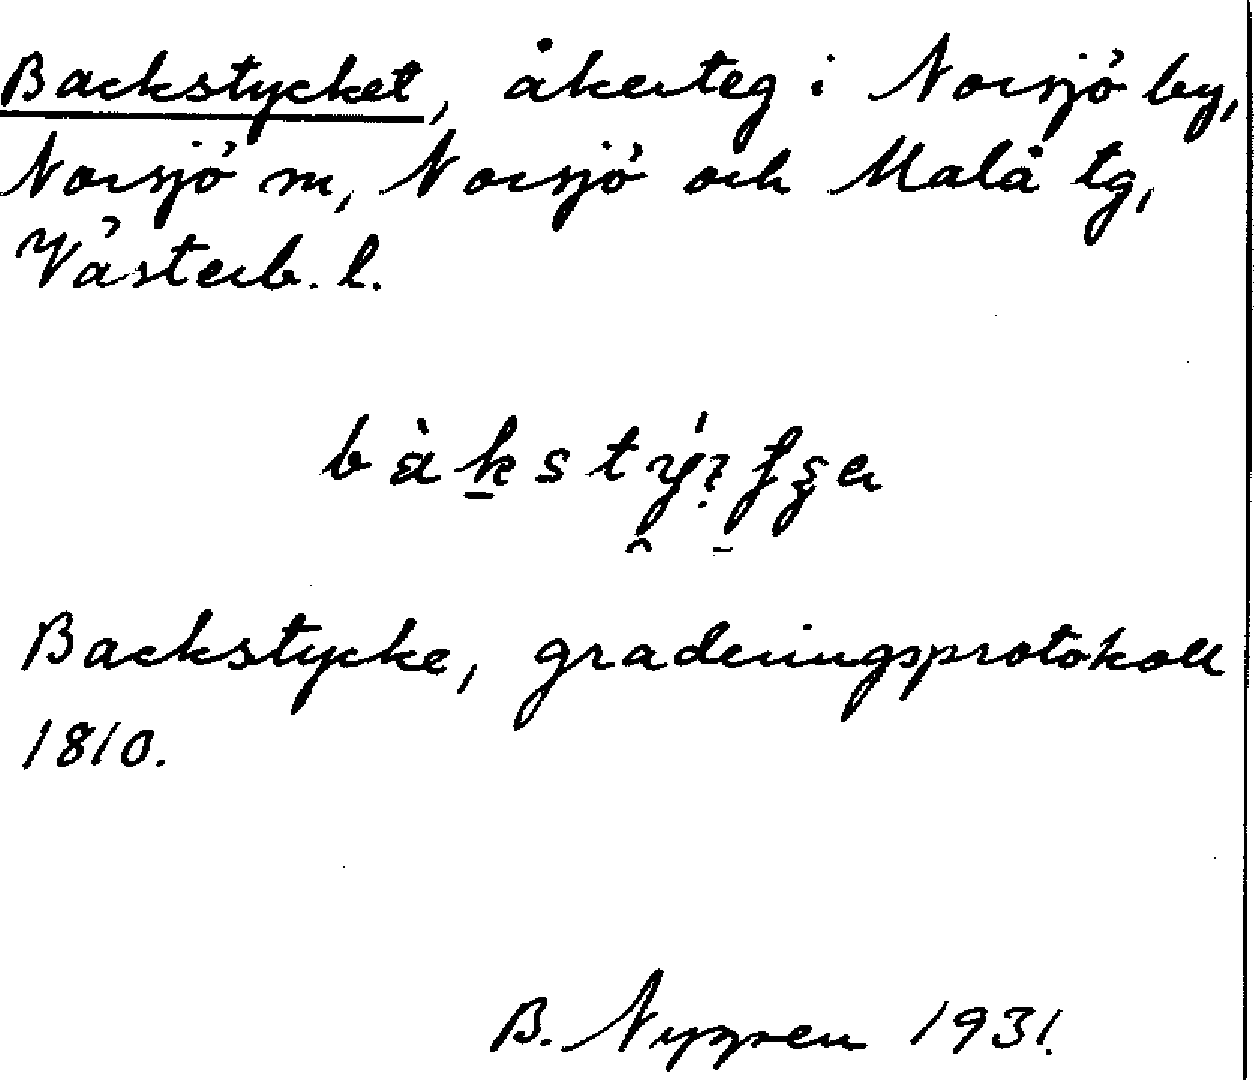 Backstycket, åkerteg i Norsjö by,
Norsjö sn, Norsjö och Malå tg,
Västerb. l.
Backstycke, graderingsprotokoll
1810.
B. Nygren 1931.